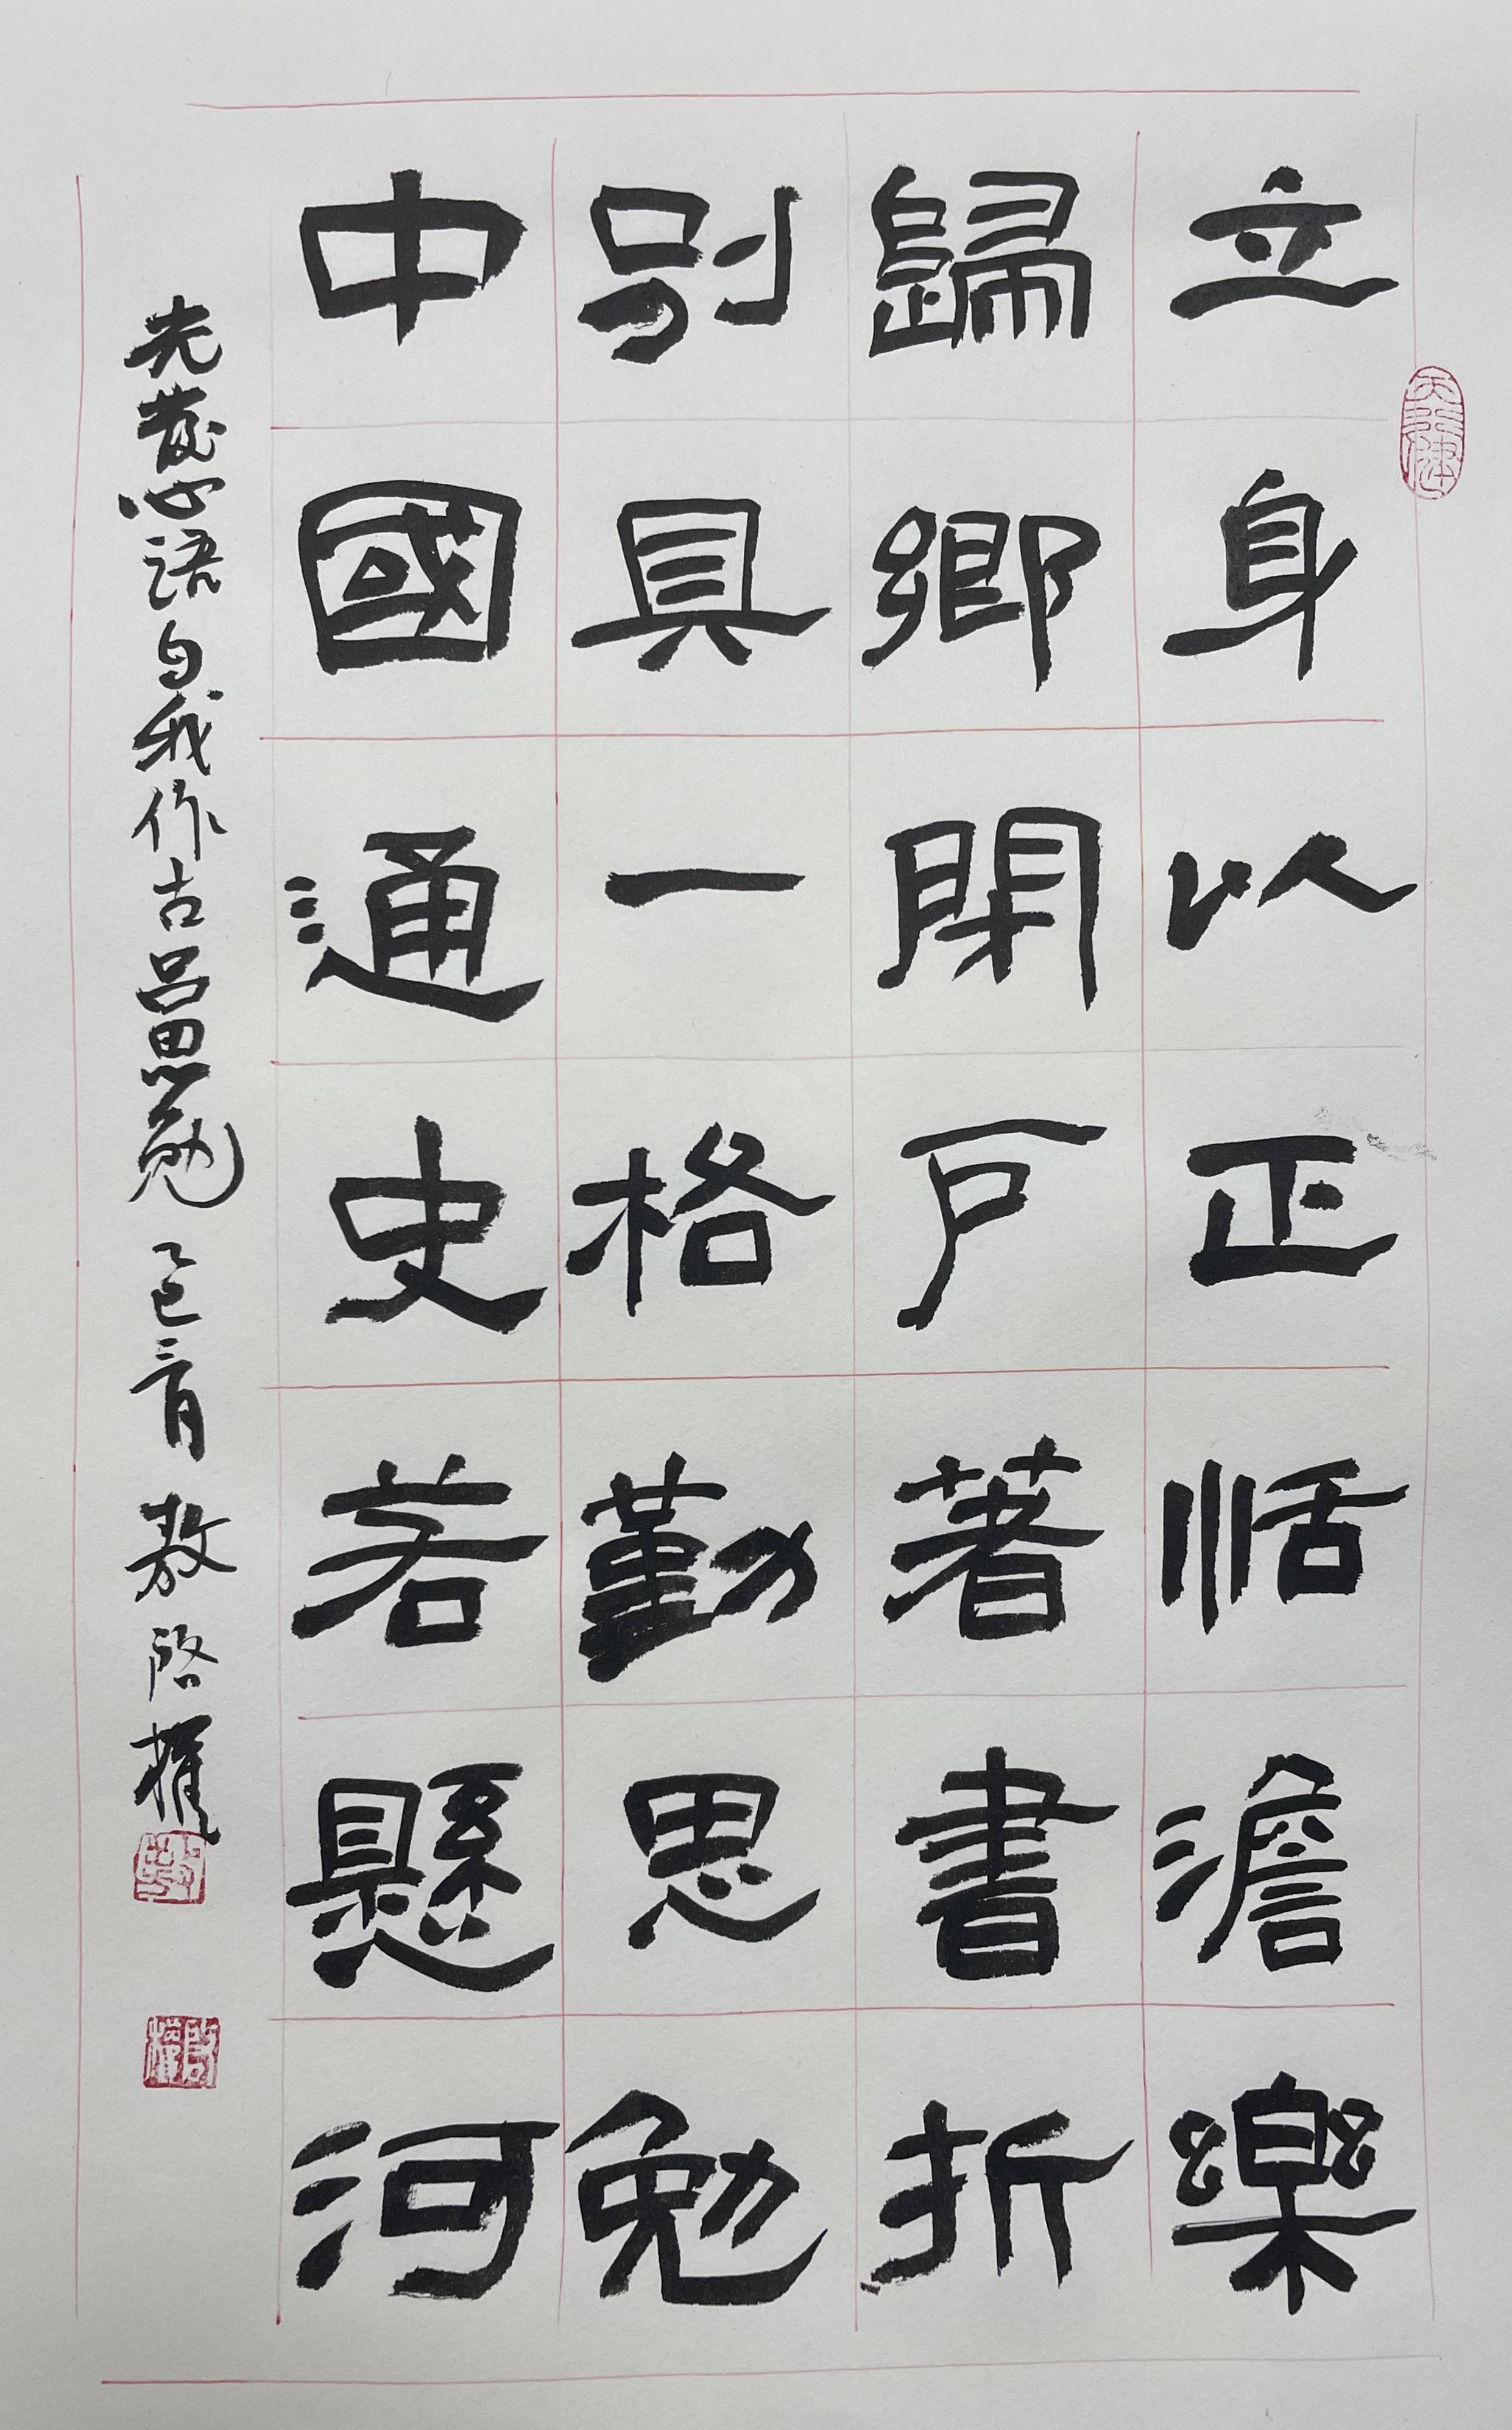 立身以正恬澹樂
歸鄉閉戶著書折
別具一格勤思勉
中國通史若懸河
先發心語句我作古呂思勉 乙巳二月 敖啓權